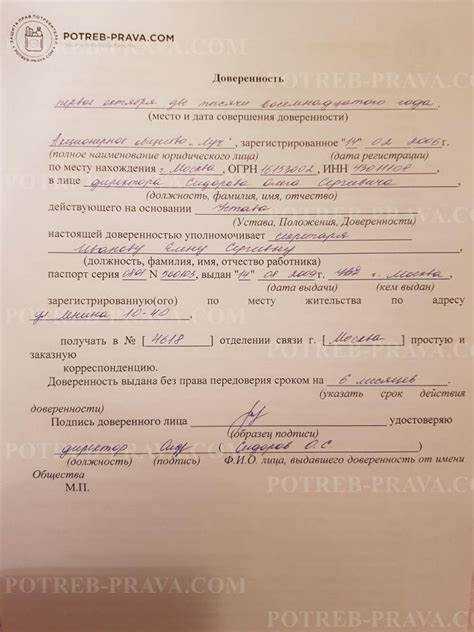 POTREB-PRAVA.COM
Доверенность
первое октября две тысячи восемнадцатого года
(место и дата совершения доверенности)
Акционерное общество "Луч", зарегистрированное "14" 02 2006г.
(полное наименование юридического лица) (дата регистрации)
по месту нахождения г. Москва, ОГРН 16153002, ИНН
в лице директора Сидорова Олега Сергеевича
(должность, фамилия, имя, отчество)
действующего на основании Устава
(Устава, Положения, Доверенности)
настоящей доверенностью уполномочивает секретаря
Иванову Елену Сергеевну
(должность, фамилия, имя, отчество работника)
паспорт серия N выдан "14" 08 2009г. г. Москва,
(дата выдачи) (кем выдан)
зарегистрированную(ого) по месту жительства по адресу
ул Мнина 10-40,
получать в № [ 4618 ] отделении связи г. [ Москва ] простую и
заказную
корреспонденцию.
Доверенность выдана без права передоверия сроком на 6 месяцев.
(указать срок действия
доверенности)
Подпись доверенного лица удостоверяю
(образец подписи)
директор Сидоров О.С )
(должность) (подпись) Ф.И.О. лица, выдавшего доверенность от имени
Общества
М.П.
POTREB-PRAVA.COM